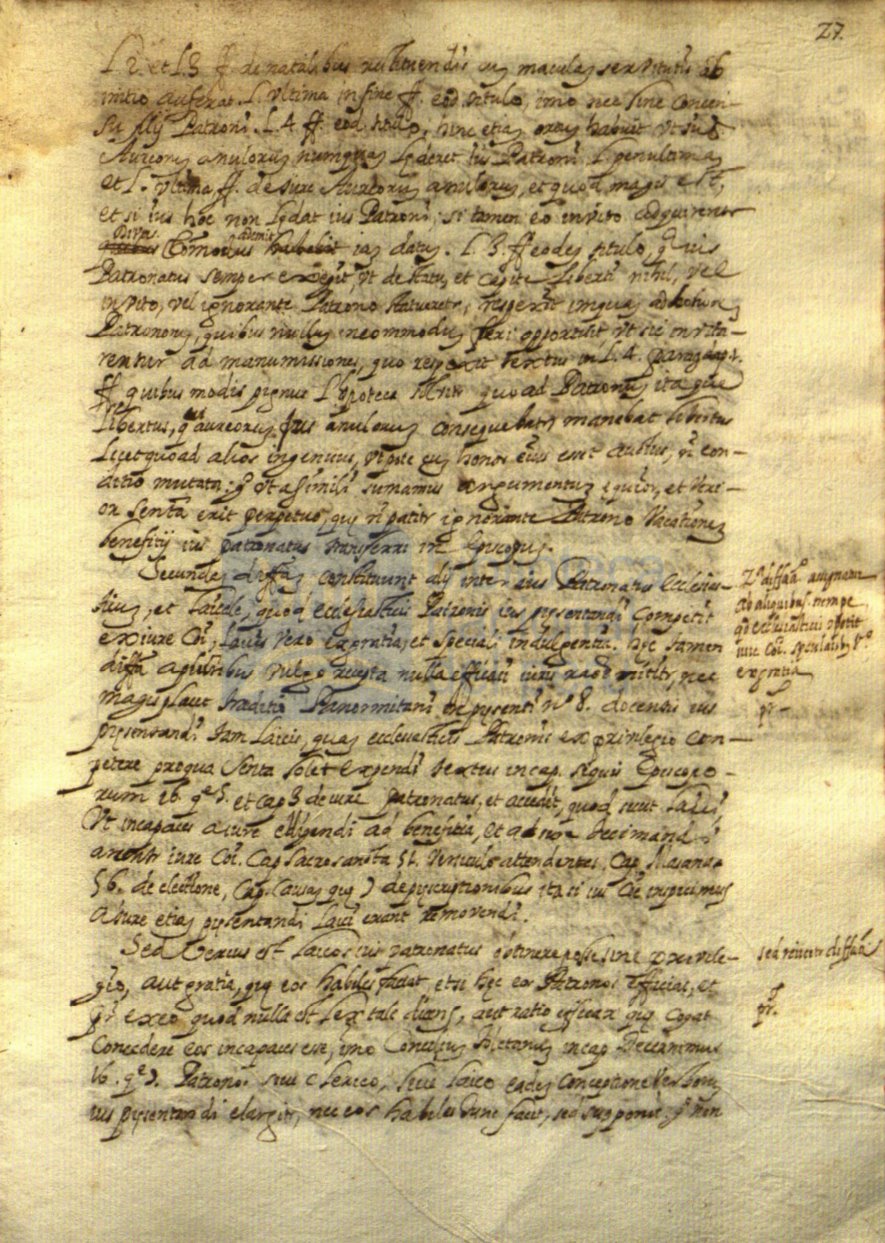 27.
L. 2. et L. 3 ff. de natalibus restituendis cum maculam servitutis ab
initio auferat L. ultima in fine ff. eod. titulo, imo nec sine consen-
su filij Patroni. L. 4. ff. eod. titulo, hinc etiam ortum habuit ut ius
Aureorum anulorum numquam lederet ius Patroni L. penultima
et L. ultima ff. de iure Aureorum anulorum, et quod magis est,
et si ius hoc non lędat ius Patroni; si tamen eo invito adquireretur
Divus Comodus ademit iam datum. L. 3. ff eodem titulo, quia ius
Patronatus semper exegit, ut de statu, et capite Liberti nihil, vel
invito, vel ignorante Patrono statueretur,
Patronorum, quibus nullum incommodum fieri oportuit ut sic invita-
rentur ad manumissiones, quo respexit textus in L. 4.
ff quibus modis pignus L. ypoteca quoad Patronum itaque
Libertus, qui aureorum Ius anulorum consequebatur manebat libertus
Licet quoad alios ingenuus, utpote cum honor eius esset auctus, non con-
ditio mutata; ut a simili sumamus argumentum equior, et veri-
or sententia erit perpetuo, quę non patitur ignorante Patrono Vacationem
beneficij ius patronatus transferri in Episcopum.
Secundam differentiam constituunt alij inter ius Patronatus Ecclesias-
ticum, et Laicale, quod ecclesiasticis Patronis ius presentandi competit
ex iure Coi, Laicis vero ex gratia, et speciali indulgentia. hęc tamen
differentia a pluribus vulgo recepta nulla efficaci iuris ratione nititur, nec
magis placet traditio Panormitani de presenti nº 8. docentis ius
presentandi tam Laicis, quam ecclesiasticis Patronis ex privilegio com-
petere pro qua sententia solet expendi textus in cap. siquis Episcopo-
rum 16 q. et cap 3 de iure patronatus, et accedit, quod sicut Laici
Ut incapaces a iure eligendi ad beneficia, et ad
arcentur iure Coi. Cap Sacrosancta 51. Cap. Massana
56. de electione, Cap. Causam quę 7 de prescriptionibus ita si ius inspicimus
a iure etiam presentandi Laici erant removendi.
Sed Verius est Laicos ius patronatus obtinere posse, sine privile-
gio, aut gratia, quę eos habiles faciat etsi hęc eos Patronos efficiat, et
ex eo quod nulla est Lex tale dicens, aut ratio efficax quę cogat
Concedere eos incapaces esse, imo Concilium Toletanum in cap Decernimus
16. q. 7. Patronos sive clerico, sive laico eadem conceptione verborum
ius presentandi elargitur, nec eos habiles tunc facit, sed supponit.
2ª diffa. assignatur
ab aliquibus nempe
qd ecclesiasticis competit
iure Coi.
ex gratia
pr.
sed reiicitur diffa
pr.